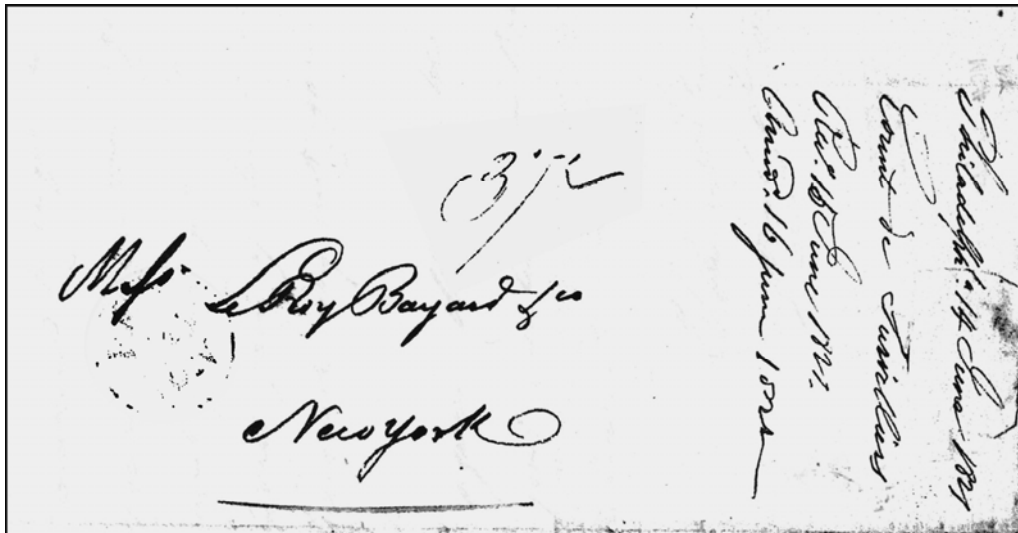 Mess.rs LeRoy Bayard & Co
New York
Philadelph.a 14 June 1821
Count de Survilliers
Rec.d 15 June 1821.
Answ.d 16 June